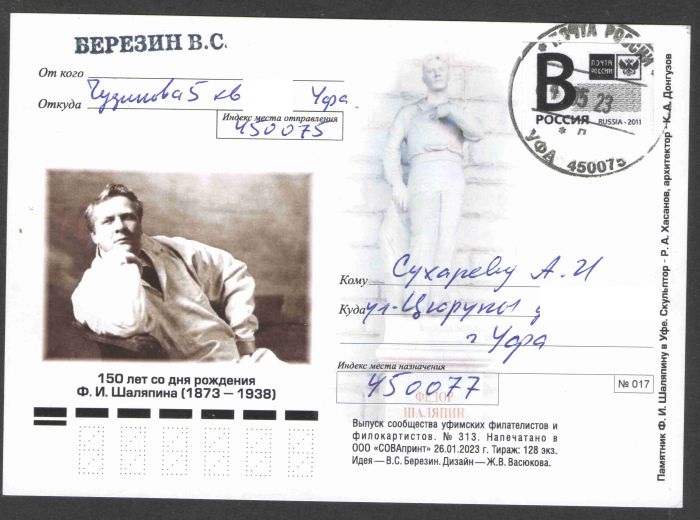 БЕРЕЗИН В.С.
От кого
Откуда Чудинова 5 кв Уфа
Индекс места отправления
450075
ПОЧТА РОССИИ
УФА 450075
05 23
ПОЧТА РОССИИ
B
РОССИЯ RUSSIA - 2011
Кому Сухареву А. И
Куда ул. Цюрупы
г Уфа
Индекс места назначения
450077
№ 017
ФЕДОР
ШАЛЯПИН
150 лет со дня рождения
Ф. И. Шаляпина (1873 – 1938)
Выпуск сообщества уфимских филателистов и
филокартистов. № 313. Напечатано в
ООО «СОВАпринт» 26.01.2023 г. Тираж: 128 экз.
Идея – В.С. Березин. Дизайн – Ж.В. Васюкова.
Памятник Ф. И. Шаляпину в Уфе. Скульптор - Р. А. Хасанов, архитектор - К. А. Донгузов